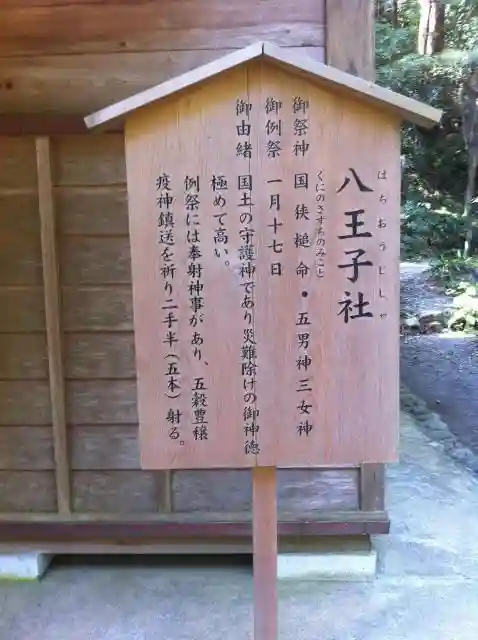 はちおうじしゃ
八王子社
くにのさすちのみこと
御祭神 国狭槌命・五男神三女神
御例祭 一月十七日
御由緒 国土の守護神であり災難除けの御神徳
極めて高い。
例祭には奉射神事があり、五穀豊穣
疫神鎮送を祈り二手半(五本)射る。